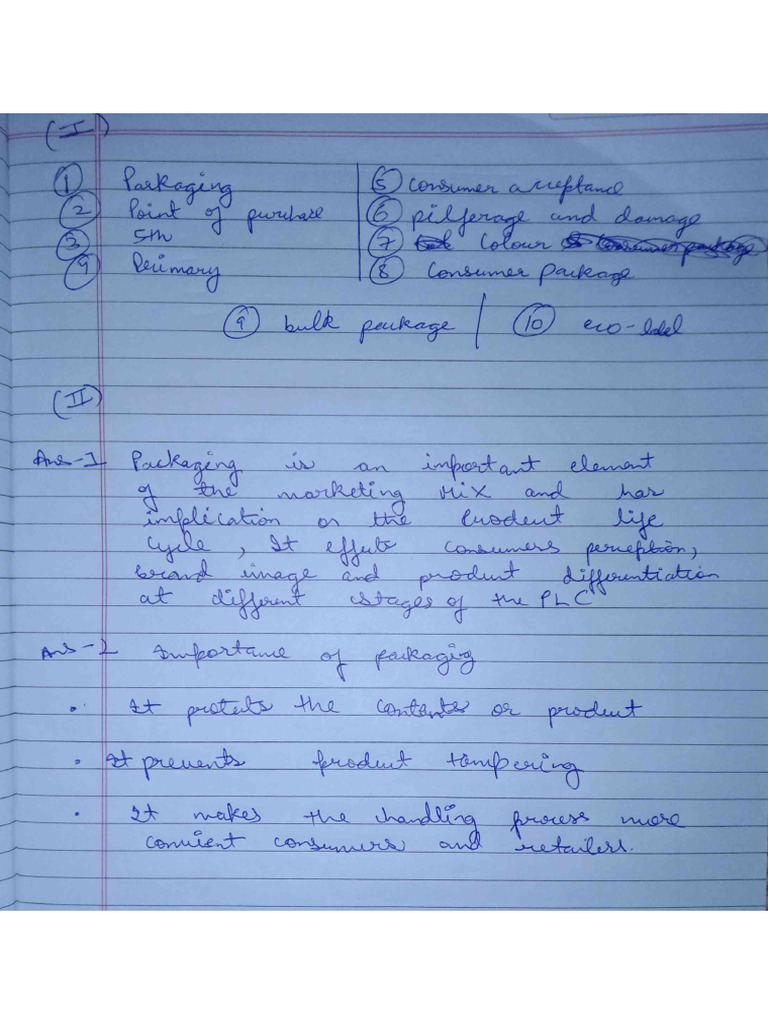 (I)
① Packaging
② Point of purchase
③ 5th
④ Primary
⑤ consumer acceptance
⑥ pilferage and damage
⑦ Colour
⑧ Consumer Package
⑨ bulk package | ⑩ eco-label
(II)
Ans-1 Packaging is an important element
of the marketing Mix and has
implication on the Product life
cycle, It effects consumers perception,
brand image and product differentiation
at different stages of the PLC
Ans-2 Importance of packaging
• It protects the contents or product
• It prevents product tampering
• It makes the handling process more
convient consumers and retailers.